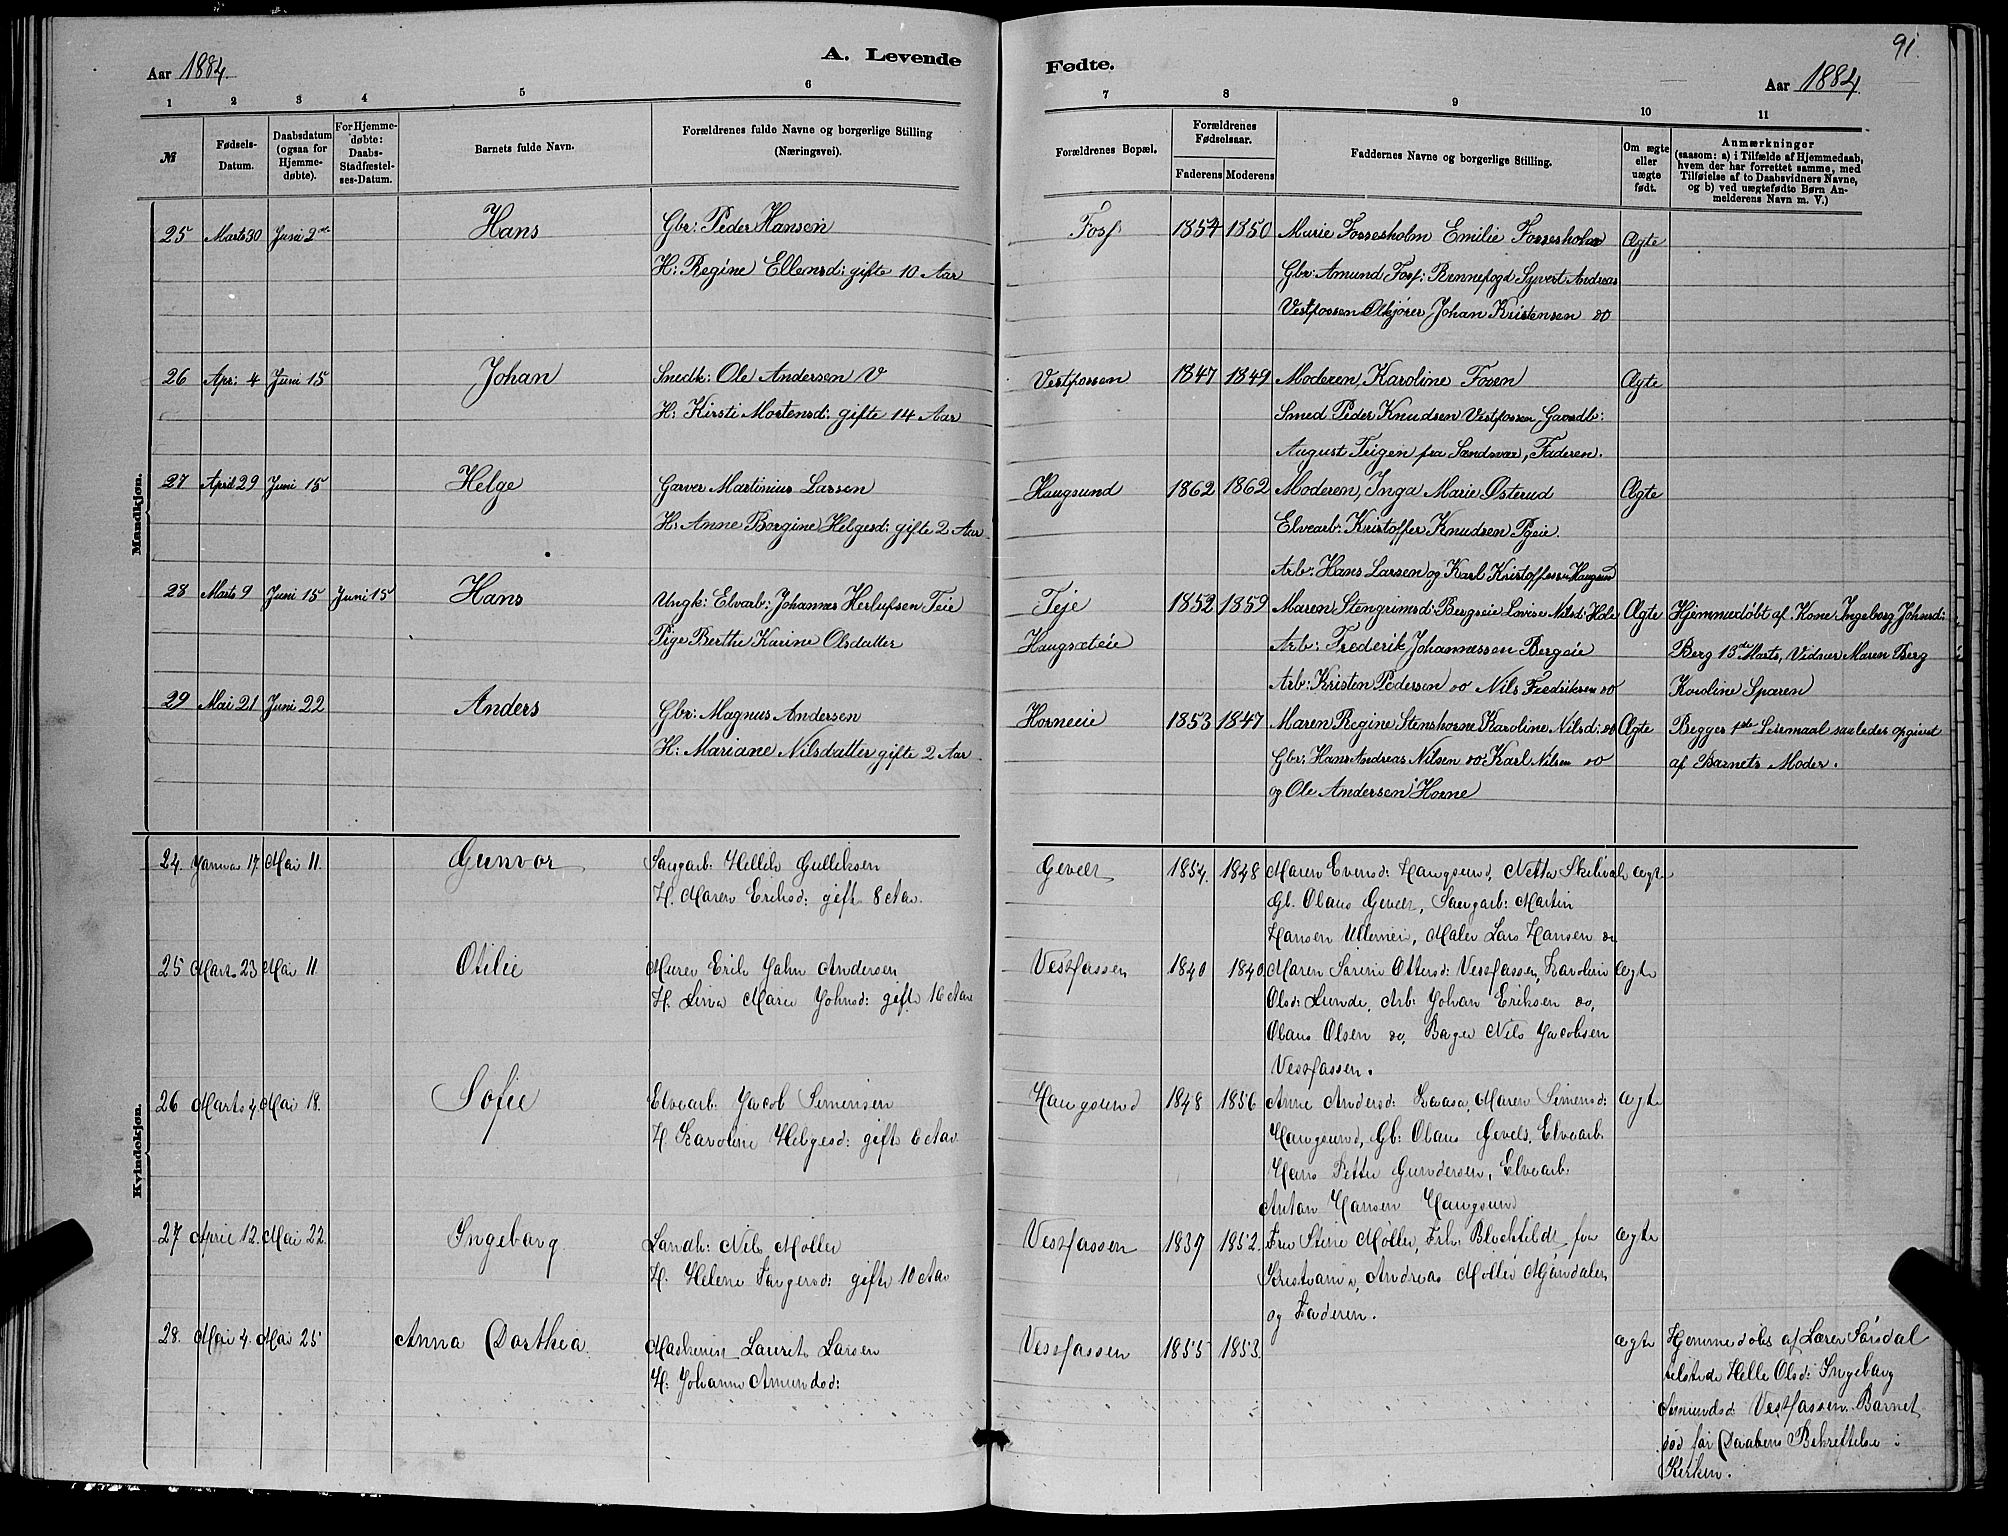 91.
Aar 1884.
A. Levende Fødte.
Aar 1884.
1 2 3 4 5 6 7 8 9 10 11
№
Fødsels-Datum.
Daabsdatum (ogsaa for Hjemme-døbte).
For Hjemme-døbte: Daabs-Stadfæstel-ses-Datum.
Barnets fulde Navn.
Forældrenes fulde Navne og borgerlige Stilling (Næringsvei).
Forældrenes Bopæl.
Forældrenes Fødselsaar.
Faderens Moderens
Faddernes Navne og borgerlige Stilling.
Om ægte eller uægte født.
Anmærkninger
(saasom: a) i Tilfælde af Hjemmedaab, hvem der har forrettet samme, med Tilføielse af to Daabsvidners Navne, og b) ved uægtefødte Børn An-melderens Navn m. V.)
Mandkjøn.
25 Marts 30 Juni 2 Hans Gbr: Peder Hansen Foss 1854 1850 Marie Fossesholm Emilie Fossesholm Ægte
H: Regine Ellensd: gifte 10 Aar Gbr: Amund Foss: Rennefogd Syvert Andreas
Vestfossen Ølkjører Johan Kristensen do
26 Apr: 4 Juni 15 Johan Snedk: Ole Andersen V Vestfossen 1847 1849 Moderen Karoline Fosen Ægte
H: Kirsti Mortensd: gifte 14 Aar Smed Peder Knudsen Vestfossen, Gaardb:
August Teigen fra Sandsvær, Faderen.
27 April 29 Juni 15 Helge Garver Martinius Larsen Haugsund 1862 1862 Moderen, Inga Marie Østerud Ægte
H: Anne Borgine Helgesd: gifte 2 Aar Elvearb: Kristoffer Knudsen
Arb: Hans Larsen og Karl Kristoffersen Haugsund
28 Marts 9 Juni 15 Juni 15 Hans Ungk: Elvarb: Johannes Herlufsen Teie Teje 1852 1859 Maren Stengrimsd: Bergseie Lovise Nilsd: Hole Ægte Hjemmedøbt af Kone Ingeborg Johnsd:
Pige Berthe Karine Olsdatter Haugsæteie Arb: Frederik Johannessen Bergeie Berg 13de Marts, Vidner Maren Berg
Arb: Kristen Pedersen do Nils Fredriksen do Karoline Sparen
29 Mai 21 Juni 22 Anders Gbr: Magnus Andersen Horneeie 1853 1847 Maren Regine Stenshorne Karoline Nilsd: do Ægte Begges 1ste Leiermaal saaledes opgivet
H: Mariane Nilsdatter gifte 2 Aar Gbr: Hans Andreas Nilsen do Karl Nilsen do af Barnets Moder.
og Ole Andersen Horne
Kvindekjøn.
24. Januar 17. Mai 11. Gunvor Saugarb: Hellik Gulliksen Geveli 1854. 1848 Maren Evensd: Haugsund, Netta ægte
H. Maren Eriksd: gift 8 Aar. Gb. Olaus Gevelt, Saugarb: Martin
Hansen Ullerneie, Maler Lars Hansen do
25 Marts 23 Mai 11 Otilie Murer Erik John Andersen Vestfossen 1840 1840 Maren Sørine Ottersd: Vestfossen, Karoline ægte
H. Lina Marie Johnsd: gift 16 Aar Olsd: Lunde, Arb: Johan Eriksen do,
Olaus Olsen do, Bager Nils Jacobsen
Vestfossen.
26 Marts 4 Mai 18. Sofie Elvearb: Jacob Simensen Haugsund 1848 1856 Anne Andersd: Kaasa, Maren Simensd: ægte
H. Karoline Helgesd: gift 6 Aar Haugsund, Gb: Olaus Gevelt, Elvearb:
Hans Petter Gundersen, Elvearb:
Anton Hansen Haugsund
27 April 12. Mai 22. Ingeborg Landh: Nils Møller Vestfossen 1837 1852. Fru Stine Møller, Frk. fra ægte
H. Helene gift 10 Aar Kristiania, Andreas Møller Mjøndalen
og Faderen.
28. Mai 4. Mai 25 Anna Dorthea Maskinist Laurits Larsen Vestfossen 1855 1853. ægte Hjemmedøbt af Lærer Sørsdal
H: Johanne Amundsd: tilstede Helle Olsd: Ingeborg
Simundsd Vestfossen. Barnet
død før Daabens Bekræftelse i
Kirken.